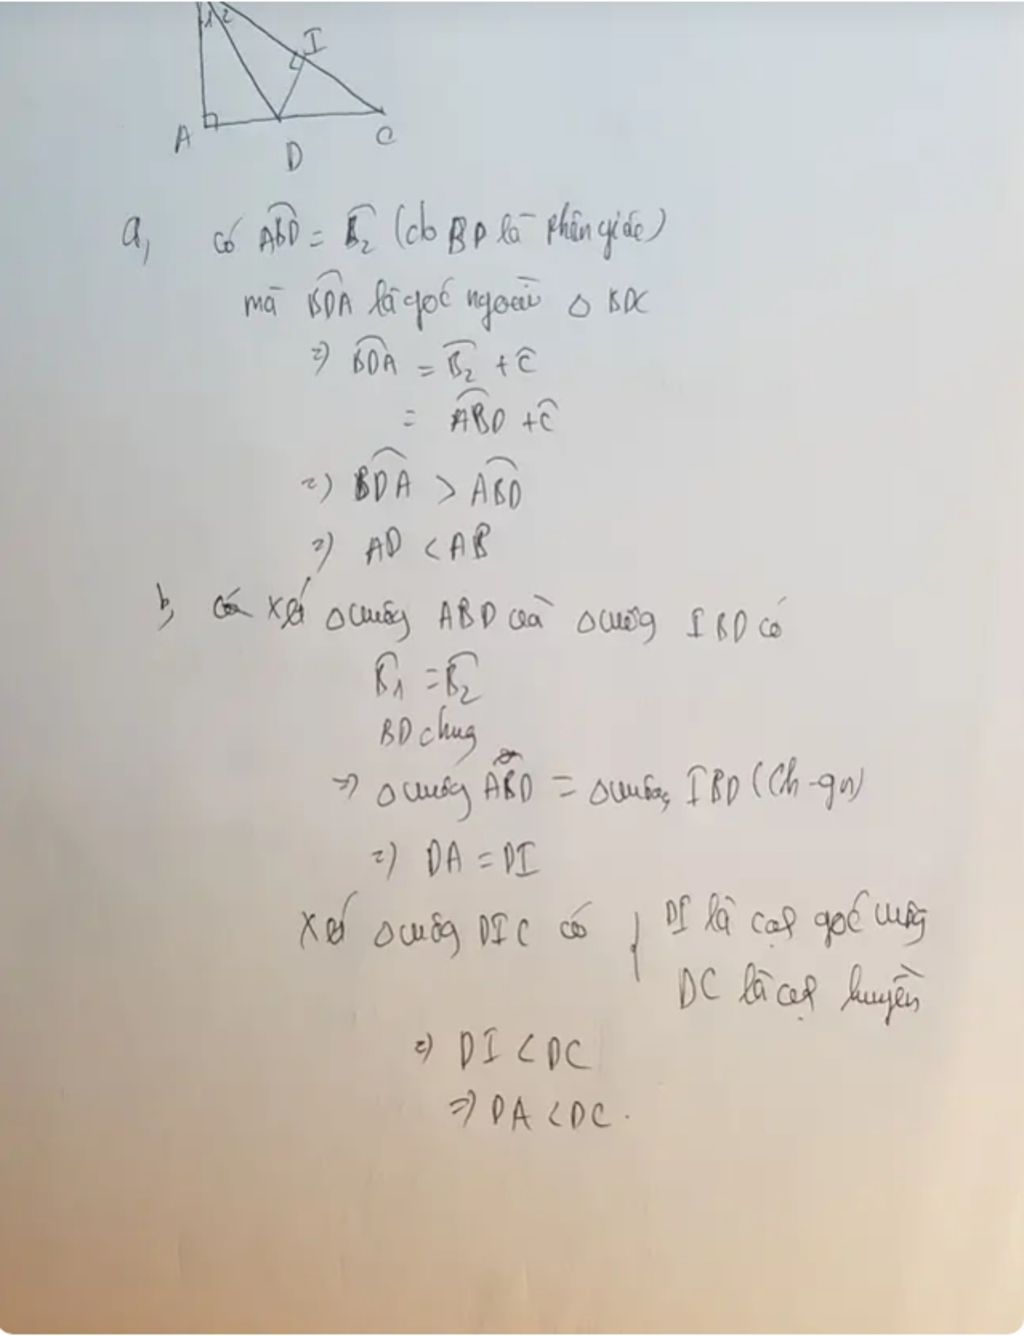 1 2
I
A
D
C
a, có ABD = B2 (do BD là phân giác)
mà BDA là góc ngoài △ BDC
=> BDA = B2 + C
= ABD + C
=> BDA > ABD
=> AD < AB
b, Xét △ vuông ABD và △ vuông IBD có
B1 = B2
BD chug
=> △ vuông ABD = △ vuông IBD (Ch - gn)
=> DA = DI
Xét △ vuông DIC có { DI là cạh góc vuông
DC là cạh huyền
=> DI < DC
=> DA < DC.